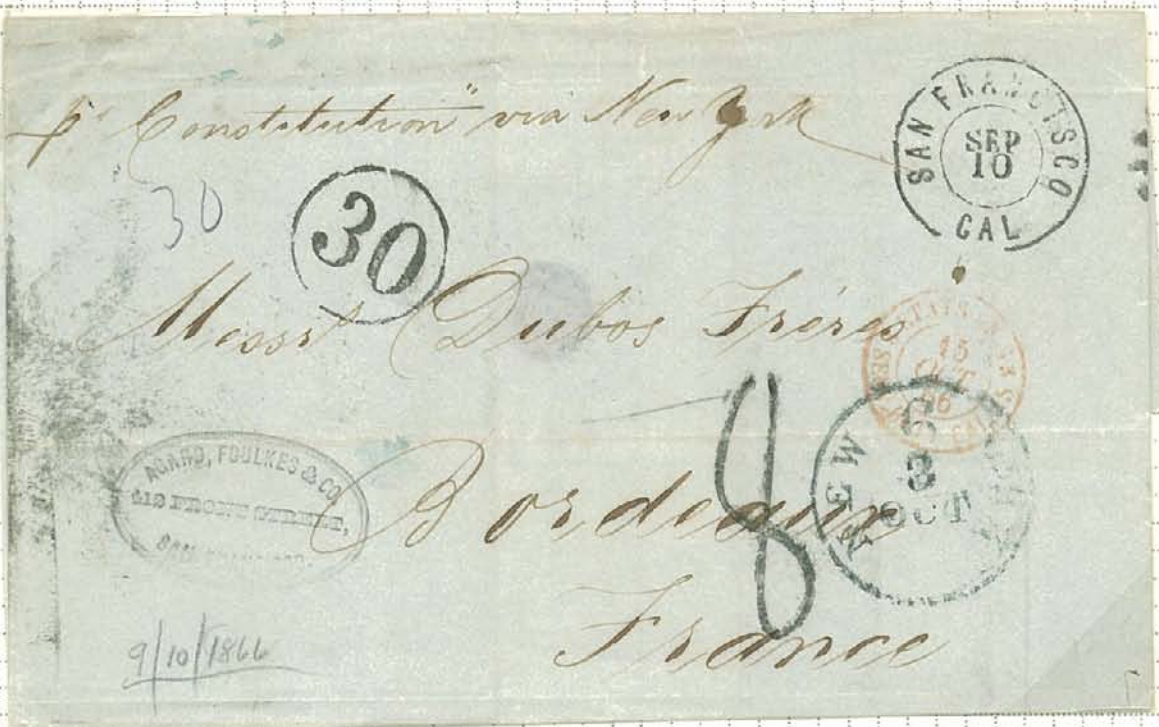 pr "Constitution" via New York
SAN FRANCISCO
SEP
10
CAL
30
30
Messrs Dubos Frères
15
OCT
66
8
NEW
6
3
OCT
AGARD, FOULKES & CO.
412 FRONT STREET,
SAN FRANCISCO.
Bordeaux
France
9/10/1866